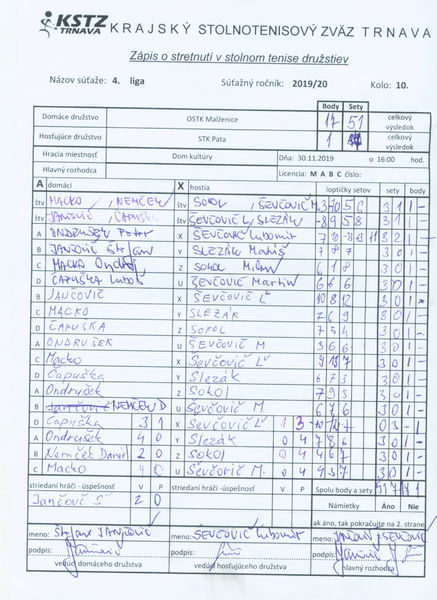 KSTZ TRNAVA KRAJSKÝ STOLNOTENISOVÝ ZVÄZ TRNAVA
Zápis o stretnutí v stolnom tenise družstiev
Názov súťaže: 4. liga Súťažný ročník: 2019/20 Kolo: 10.
Body Sety
Domáce družstvo OSTK Malženice 17 51 celkový výsledok
Hosťujúce družstvo STK Pata 1 celkový výsledok
Hracia miestnosť Dom kultúry Dňa: 30.11.2019 o 16:00 hod.
Hlavný rozhodca Licencia: M A B C číslo:
A domáci X hostia loptičky setov sety body
štv MACKO, NEMČEK štv SOKOL, ŠEVČOVIČ M. 3 1 1 -
štv JANČOVIČ, ČAPUŠKA štv ŠEVČOVIČ Ľ, SLEZÁK -8 9 5 8 3 1 1 -
A ONDRUŠEK Peter X ŠEVČOVIČ Ľubomír 7 10 -8 -9 11 3 2 1 -
B JANČOVIČ Štefan Y SLEZÁK Matúš 7 8 7 3 0 1 -
C MACKO Ondrej Z SOKOL Milan 6 1 8 3 0 1 -
D ČAPUŠKA Ľuboš U ŠEVČOVIČ Martin 6 6 6 3 0 1 -
B JANČOVIČ X ŠEVČOVIČ Ľ 10 8 12 3 0 1 -
C MACKO Y SLEZÁK 7 6 9 3 0 1 -
D ČAPUSKA Z SOKOL 7 5 4 3 0 1 -
A ONDRUŠEK U ŠEVČOVIČ M 3 6 6 3 0 1 -
C Macko X Ševčovič Ľ 3 0 1 -
D Čapuška Y Slezák 6 7 3 3 0 1 -
A Ondrušek Z Sokol 7 9 3 3 0 1 -
B NEMČEK D U Ševčovič M. 6 7 6 3 0 1 -
D Čapuška 3 1 X Ševčovič Ľ 1 3 0 3 - 1
A Ondrušek 4 0 Y Slezák 0 4 7 8 6 3 0 1 -
B Nemček Daniel 2 0 Z Sokol 0 4 4 6 7 3 0 1 -
C Macko 4 0 U Ševčovič M. 0 4 9 3 7 3 0 1 -
striedaní hráči - úspešnosť V P striedaní hráči - úspešnosť V P Spolu body a sety 51 7 17 1
Jančovič Š 2 0 Námietky Áno Nie
ak áno, tak pokračujte na 2. strane
meno: Štefan JANČOVIČ meno: ŠEVČOVIČ Ľubomír meno:
podpis: podpis: podpis:
vedúci domáceho družstva vedúci hosťujúceho družstva hlavný rozhodca